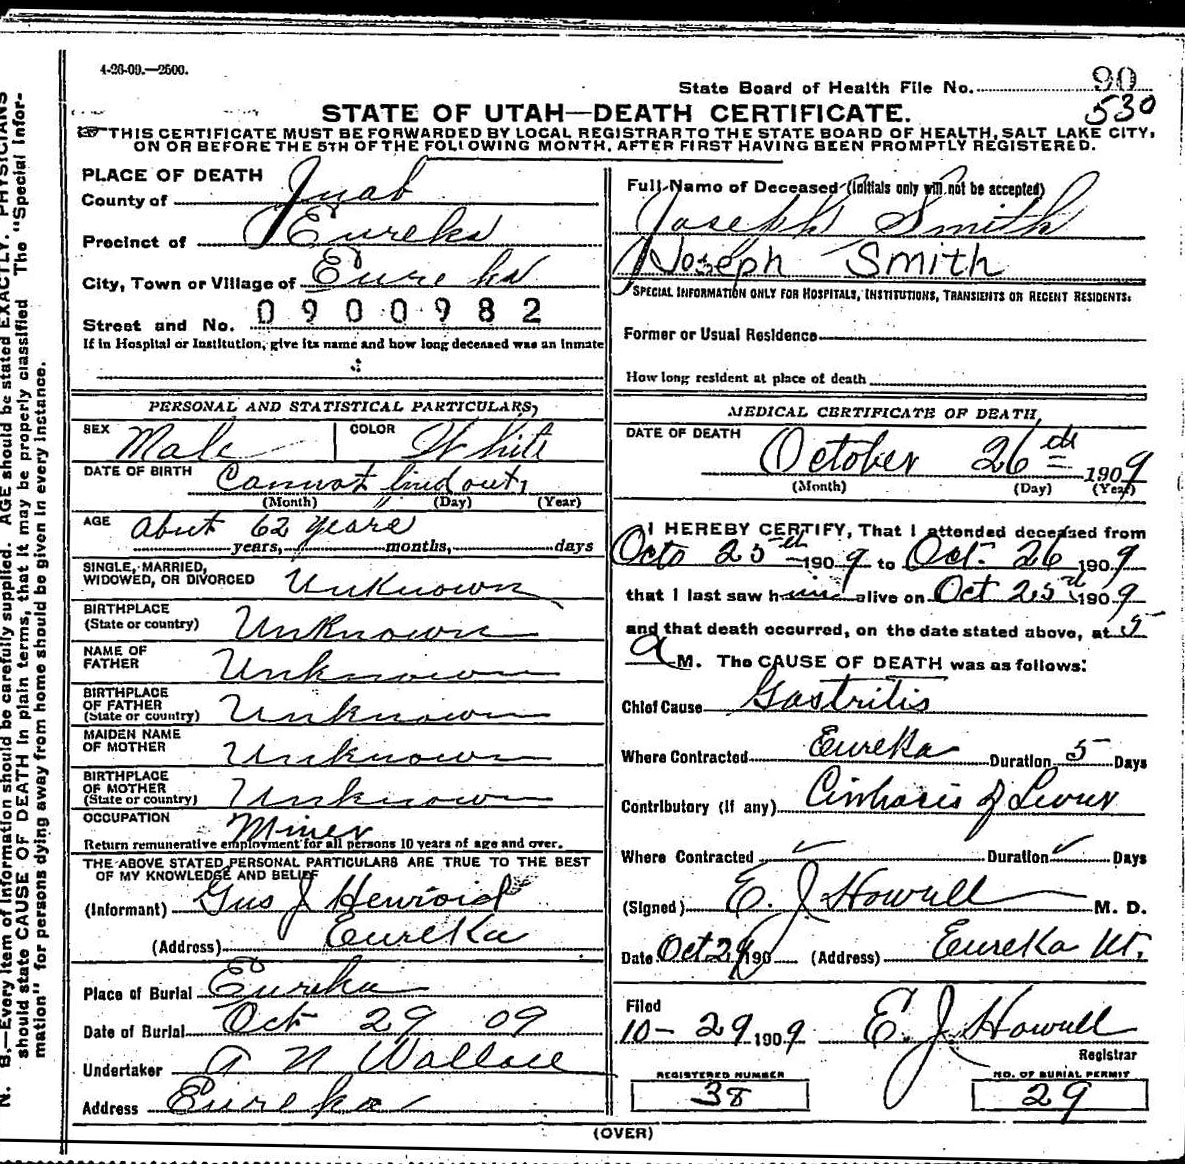 4-26-09.—2500.
State Board of Health File No. 90
530
STATE OF UTAH—DEATH CERTIFICATE.
THIS CERTIFICATE MUST BE FORWARDED BY LOCAL REGISTRAR TO THE STATE BOARD OF HEALTH, SALT LAKE CITY,
ON OR BEFORE THE 5TH OF THE FOLLOWING MONTH, AFTER FIRST HAVING BEEN PROMPTLY REGISTERED.
PLACE OF DEATH
County of Juab
Precinct of Eureka
City, Town or Village of Eureka
Street and No. 0900982
If in Hospital or Institution, give its name and how long deceased was an inmate
PERSONAL AND STATISTICAL PARTICULARS,
SEX Male COLOR White
DATE OF BIRTH Cannot find out,
(Month) (Day) (Year)
AGE about 62 years
years, months, days
SINGLE, MARRIED,
WIDOWED, OR DIVORCED Unknown
BIRTHPLACE
(State or country) Unknown
NAME OF
FATHER Unknown
BIRTHPLACE
OF FATHER
(State or country) Unknown
MAIDEN NAME
OF MOTHER Unknown
BIRTHPLACE
OF MOTHER
(State or country) Unknown
OCCUPATION Miner
Return remunerative employment for all persons 10 years of age and over.
THE ABOVE STATED PERSONAL PARTICULARS ARE TRUE TO THE BEST
OF MY KNOWLEDGE AND BELIEF
(Informant) Gus J Henroid
(Address) Eureka
Place of Burial Eureka
Date of Burial Oct 29 09
Undertaker A N Wallace
Address Eureka
Full Name of Deceased (Initials only will not be accepted)
Joseph Smith
Joseph Smith
SPECIAL INFORMATION ONLY FOR HOSPITALS, INSTITUTIONS, TRANSIENTS OR RECENT RESIDENTS.
Former or Usual Residence
How long resident at place of death
MEDICAL CERTIFICATE OF DEATH,
DATE OF DEATH
October 26th 1909
(Month) (Day) (Year)
I HEREBY CERTIFY, That I attended deceased from
Octo 25th 1909 to Oct. 26 1909
that I last saw him alive on Oct 25th 1909
and that death occurred, on the date stated above, at 5
a M. The CAUSE OF DEATH was as follows:
Chief Cause Gastritis
Where Contracted Eureka Duration 5 Days
Contributory (if any) Cirrhosis of Liver
Where Contracted Duration Days
(Signed) E. J. Howell M. D.
Date Oct 29 190 (Address) Eureka Ut.
Filed
10-29 1909 E. J. Howell
Registrar
REGISTERED NUMBER
38
NO. OF BURIAL PERMIT
29
(OVER)
N. B.—Every item of information should be carefully supplied. AGE should be stated EXACTLY. PHYSICIANS
should state CAUSE OF DEATH in plain terms, that it may be properly classified. The "Special Infor-
mation" for persons dying away from home should be given in every instance.